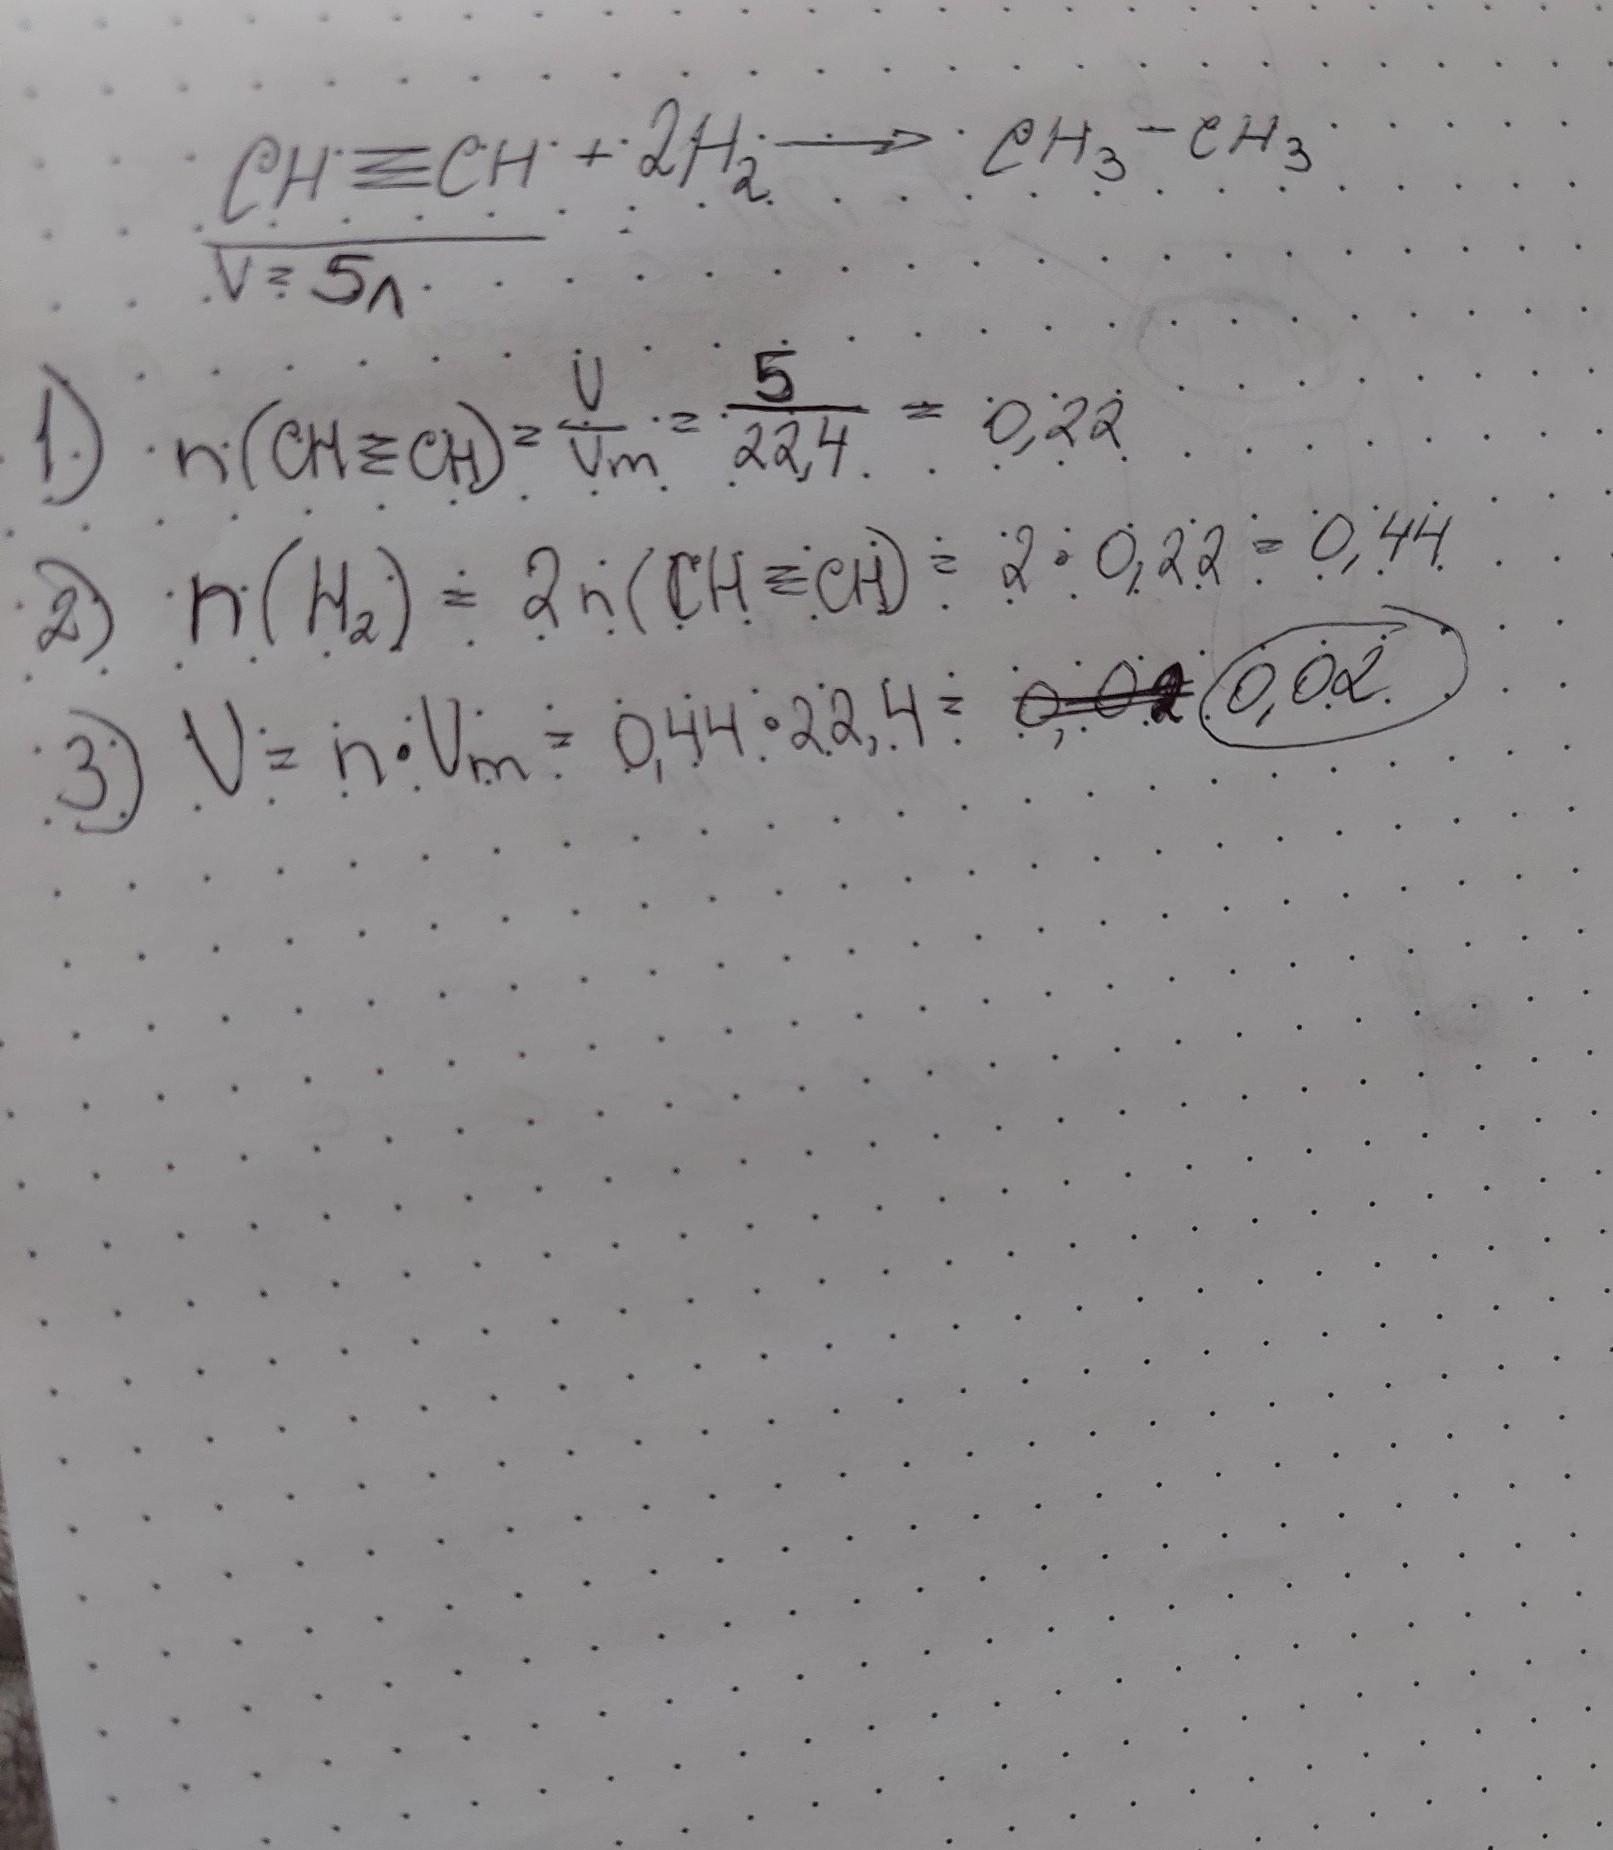 CH≡CH + 2H₂ → CH₃-CH₃
V = 5л
1) n(CH≡CH) = V/Vm = 5/22,4 = 0,22
2) n(H₂) = 2n(CH≡CH) = 2·0,22 = 0,44
3) V = n·Vm = 0,44·22,4 = 0,02 0,02